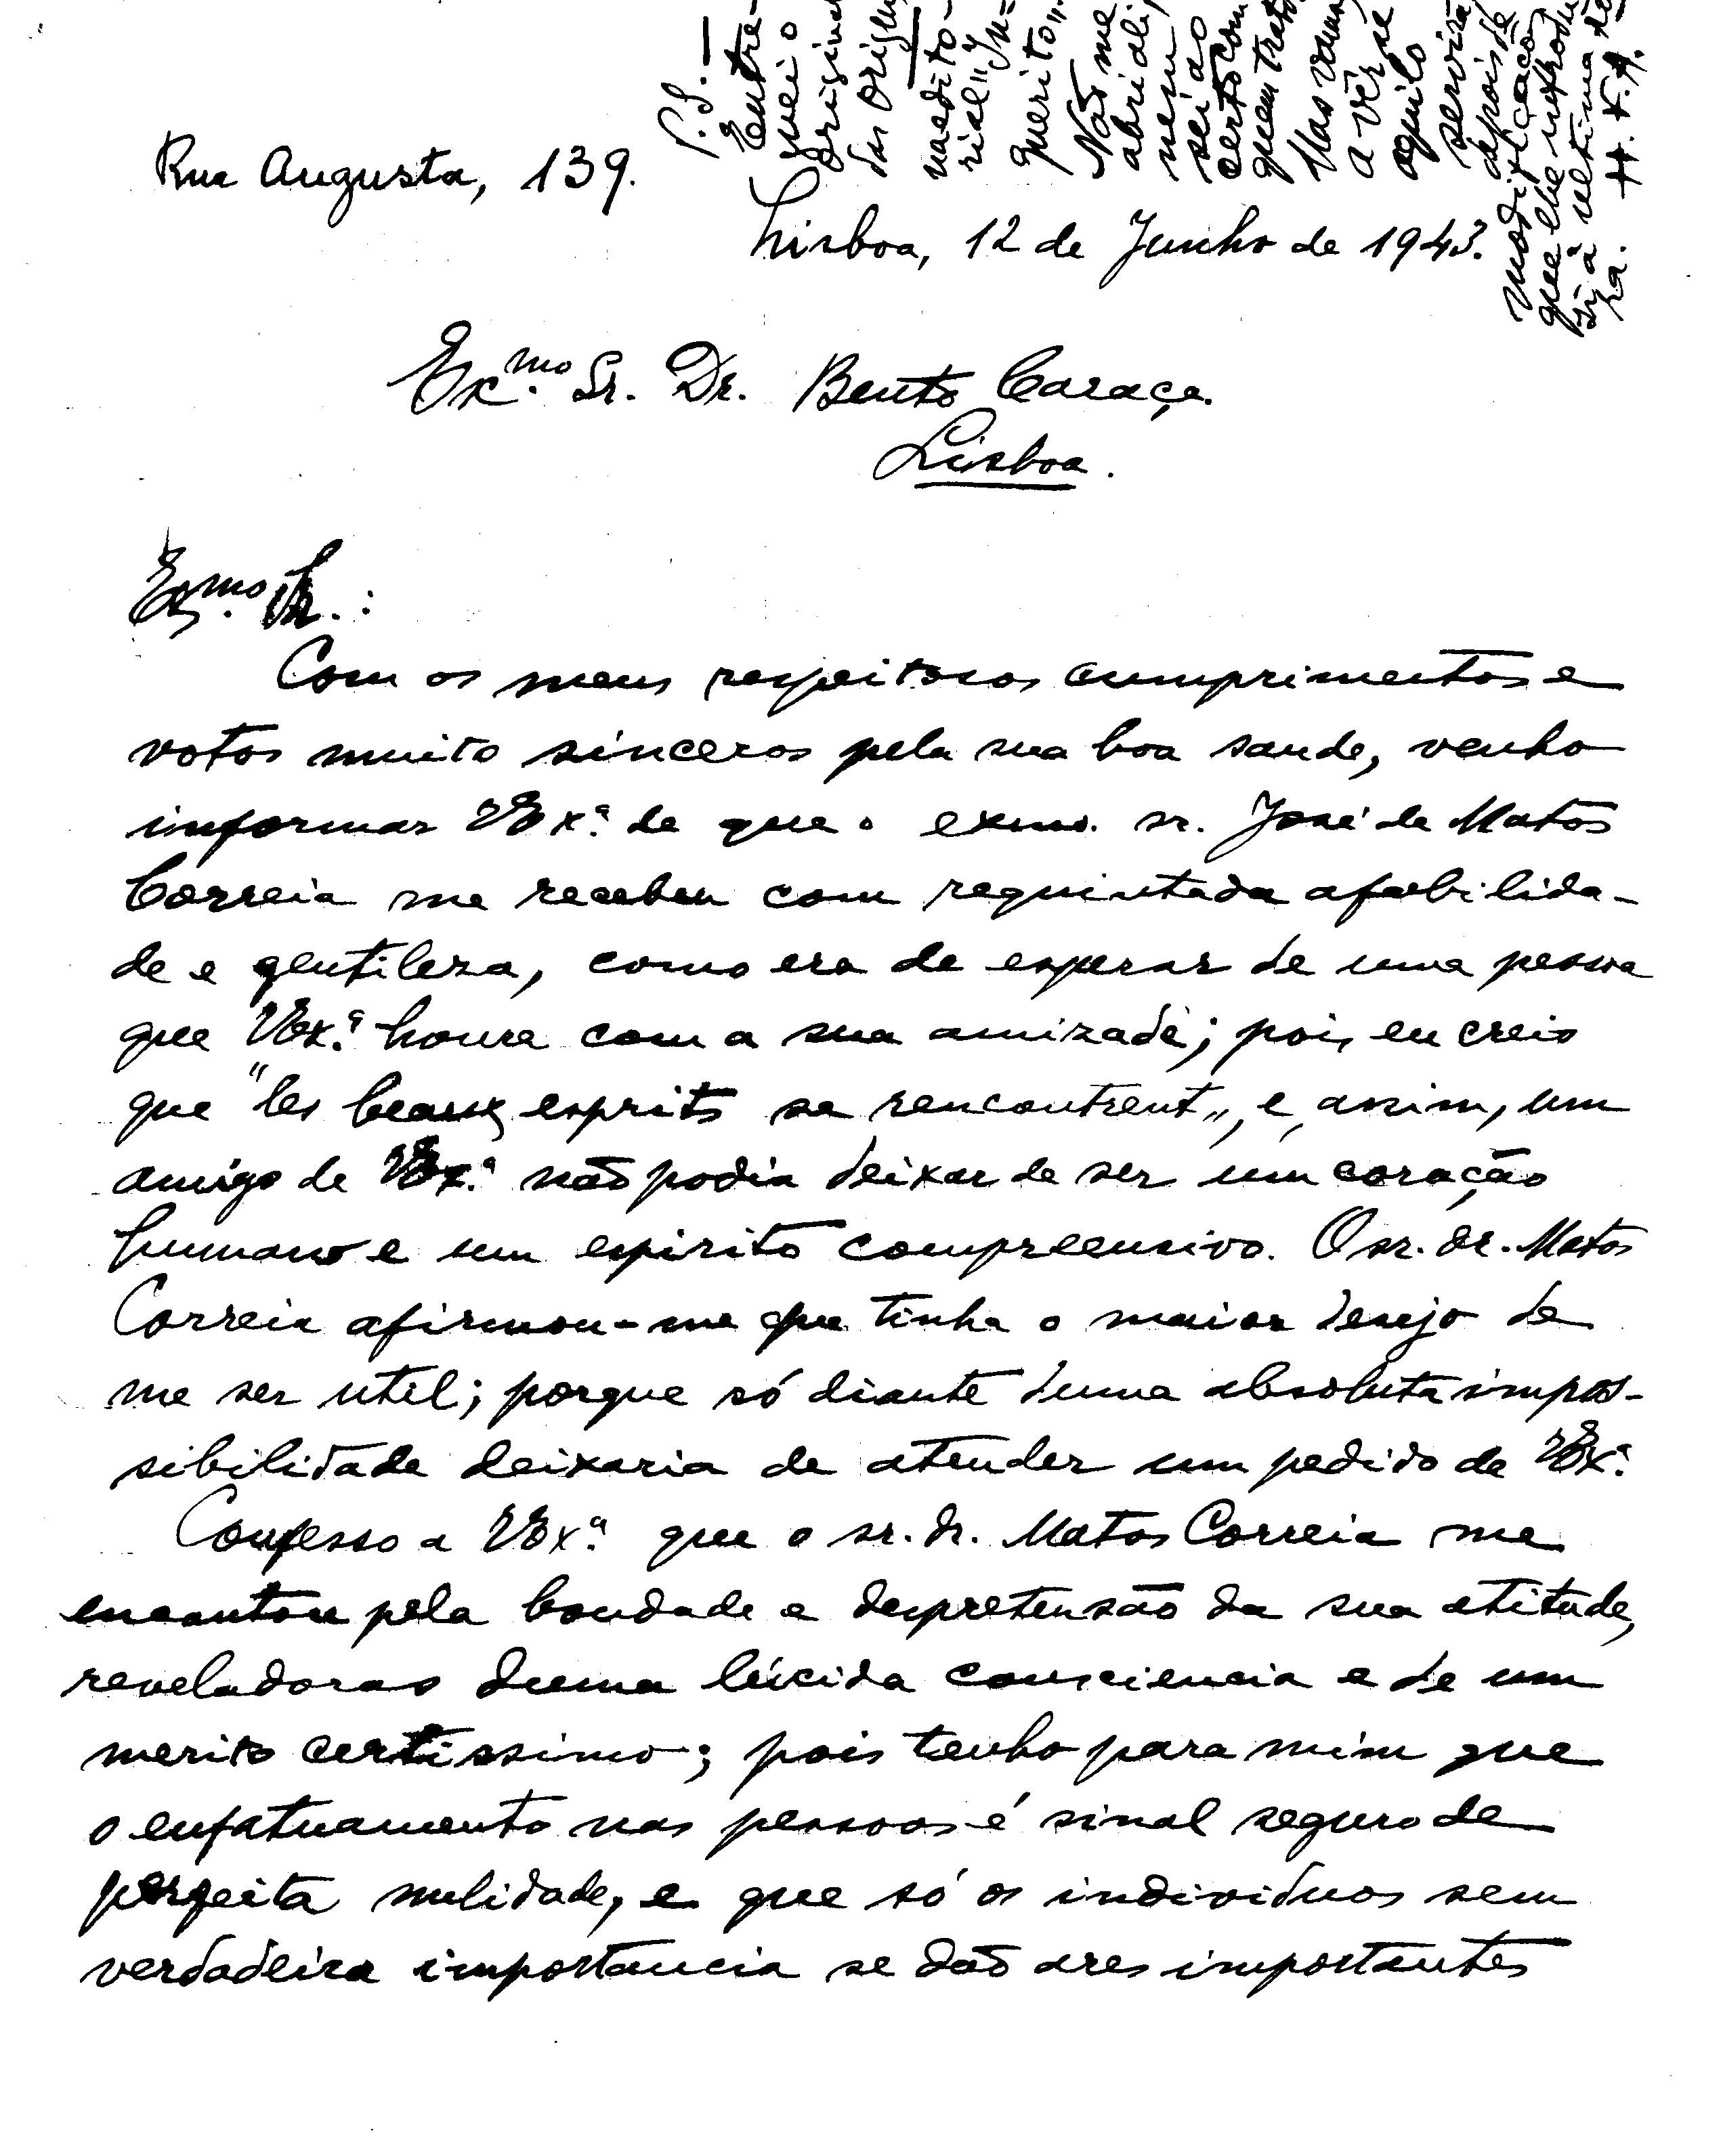 Rua Augusta, 139.
Lisboa, 12 de Junho de 1943.
Exmo. Sr. Dr. Bento Caraça.
Lisboa.
Exmo. Sr.:
Com os meus respeitosos cumprimentos e
votos muito sinceros pela sua boa saude, venho
informar VExª. de que o exmo. sr. José de Matos
Correia me recebeu com requintada afabilida-
de e gentileza, como era de esperar de uma pessoa
que VExª. honra com a sua amizade; pois eu creio
que "les beaux esprits se rencontrent", e, assim, um
amigo de VExª. não podia deixar de ser um coração
humano e um espirito compreensivo. O sr. dr. Matos
Correia afirmou-me que tinha o maior desejo de
me ser util; porque só diante duma absoluta impos-
sibilidade deixaria de atender um pedido de VExª.
Confesso a VExª. que o sr. dr. Matos Correia me
encantou pela bondade e despretensão da sua atitude,
reveladoras duma lúcida consciencia e de um
merito certissimo; pois tenho para mim que
o enfatuamento nas pessoas é sinal seguro de
perfeita nulidade, e que só os individuos sem
verdadeira importancia se dão ares importantes
P.S. —
Entre-
guei o
das
In-
querito".
Não me
abri ali,
nem
sei ao
certo com
quem
Mas
a vêr se
aquilo
depois de
modificação
que lhe